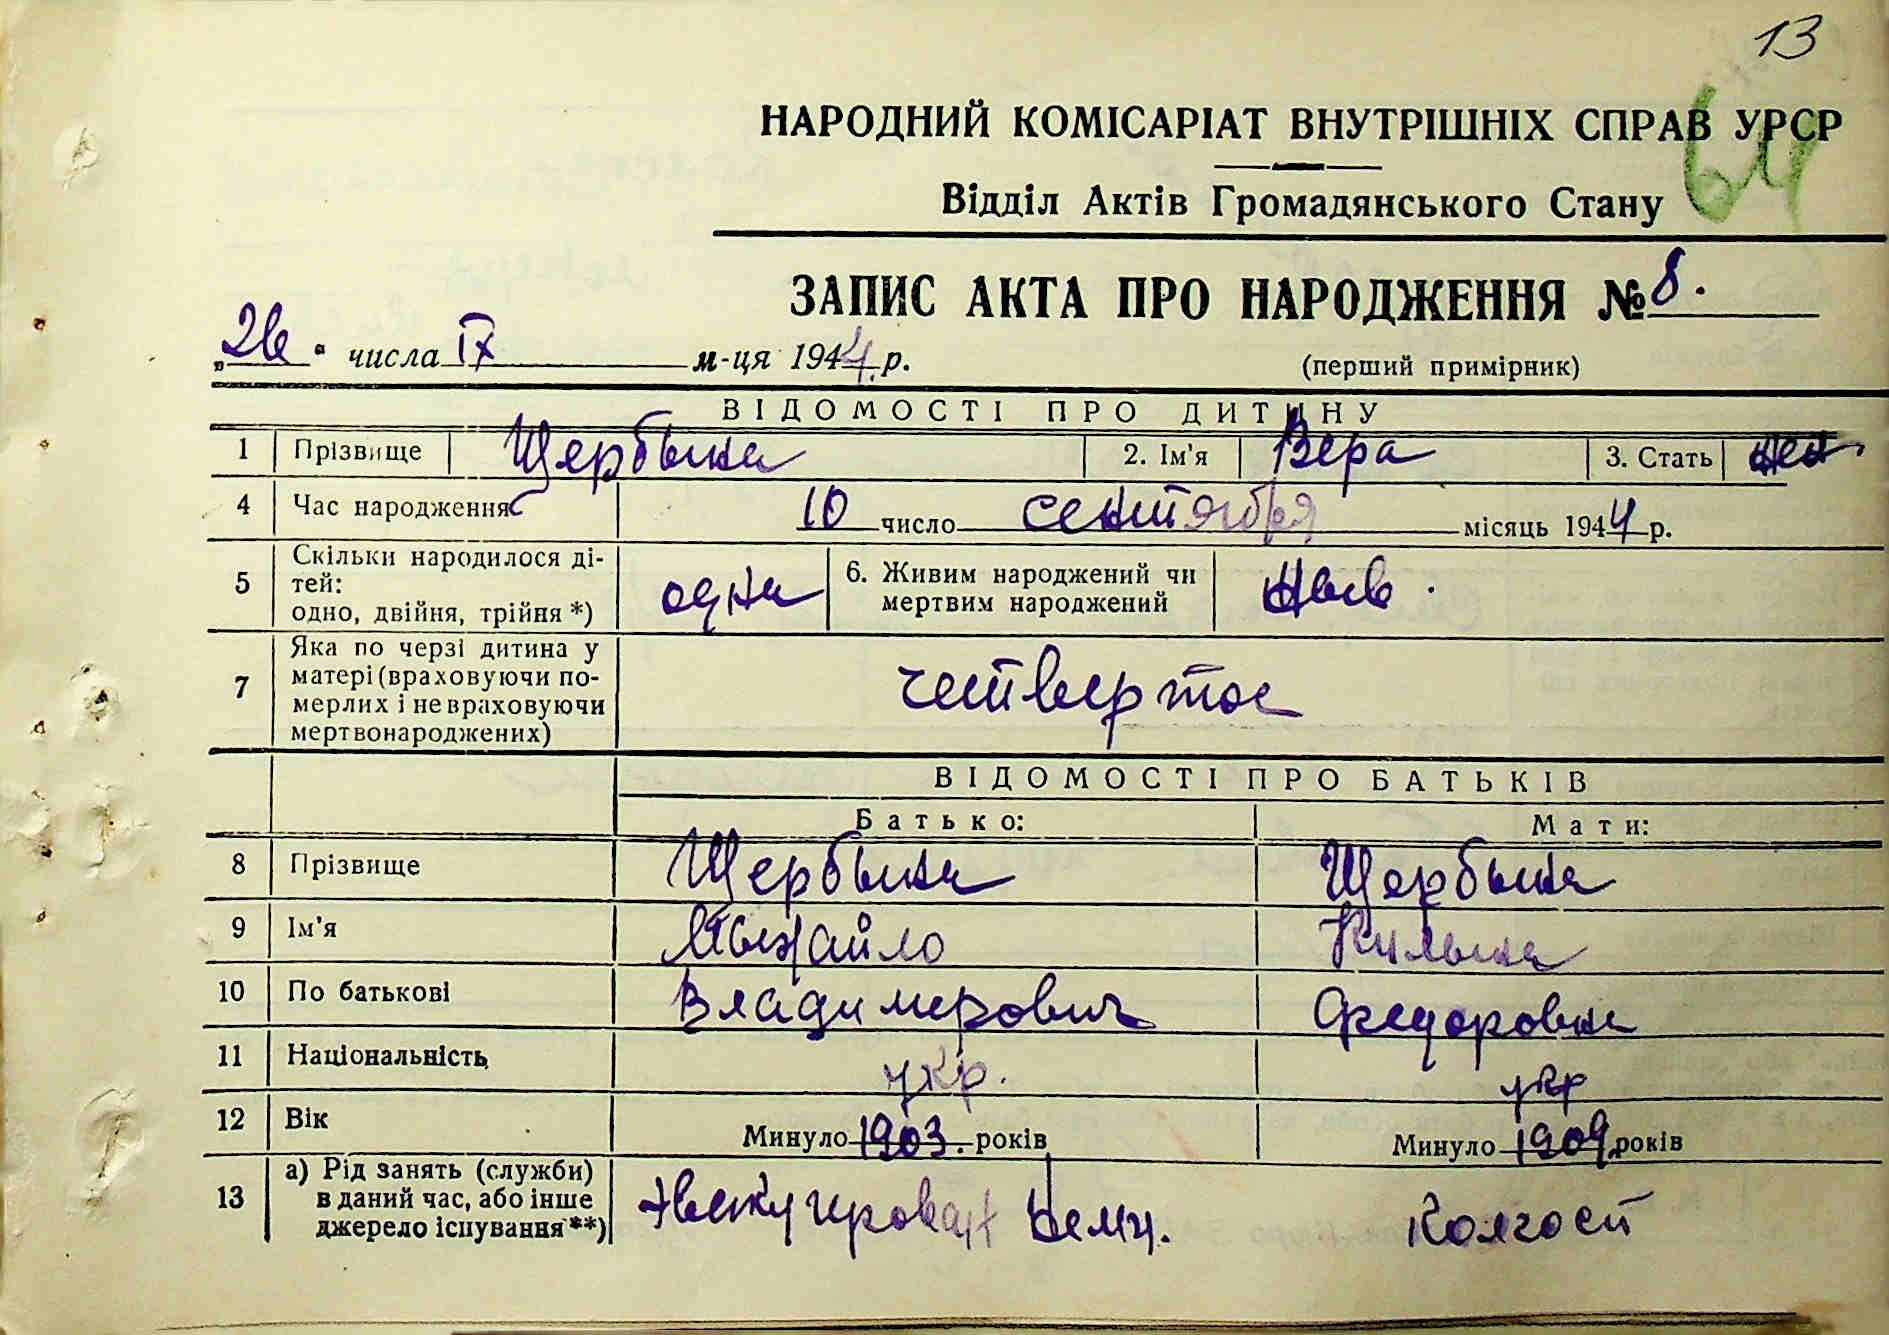 13
НАРОДНИЙ КОМІСАРІАТ ВНУТРІШНІХ СПРАВ УРСР
64
Відділ Актів Громадянського Стану
ЗАПИС АКТА ПРО НАРОДЖЕННЯ № 8.
„26“ числа IX м-ця 1944 р. (перший примірник)
ВІДОМОСТІ ПРО ДИТИНУ
1 Прізвище Щербына 2. Ім'я Вера 3. Стать жен
4 Час народження 10 число сентября місяць 1944 р.
5 Скільки народилося ді-
тей:
одно, двійня, трійня *) одна 6. Живим народжений чи
мертвим народжений жыв.
7 Яка по черзі дитина у
матері (враховуючи по-
мерлих і не враховуючи
мертвонароджених) четвертое
ВІДОМОСТІ ПРО БАТЬКІВ
Батько: Мати:
8 Прізвище Щербына Щербына
9 Ім'я Мыхайло Килына
10 По батькові Владимерович Федоровна
11 Національність укр. укр
12 Вік Минуло 1903. років Минуло 1909. років
13 а) Рід занять (служби)
в даний час, або інше
джерело існування **) Немц. Колгосп